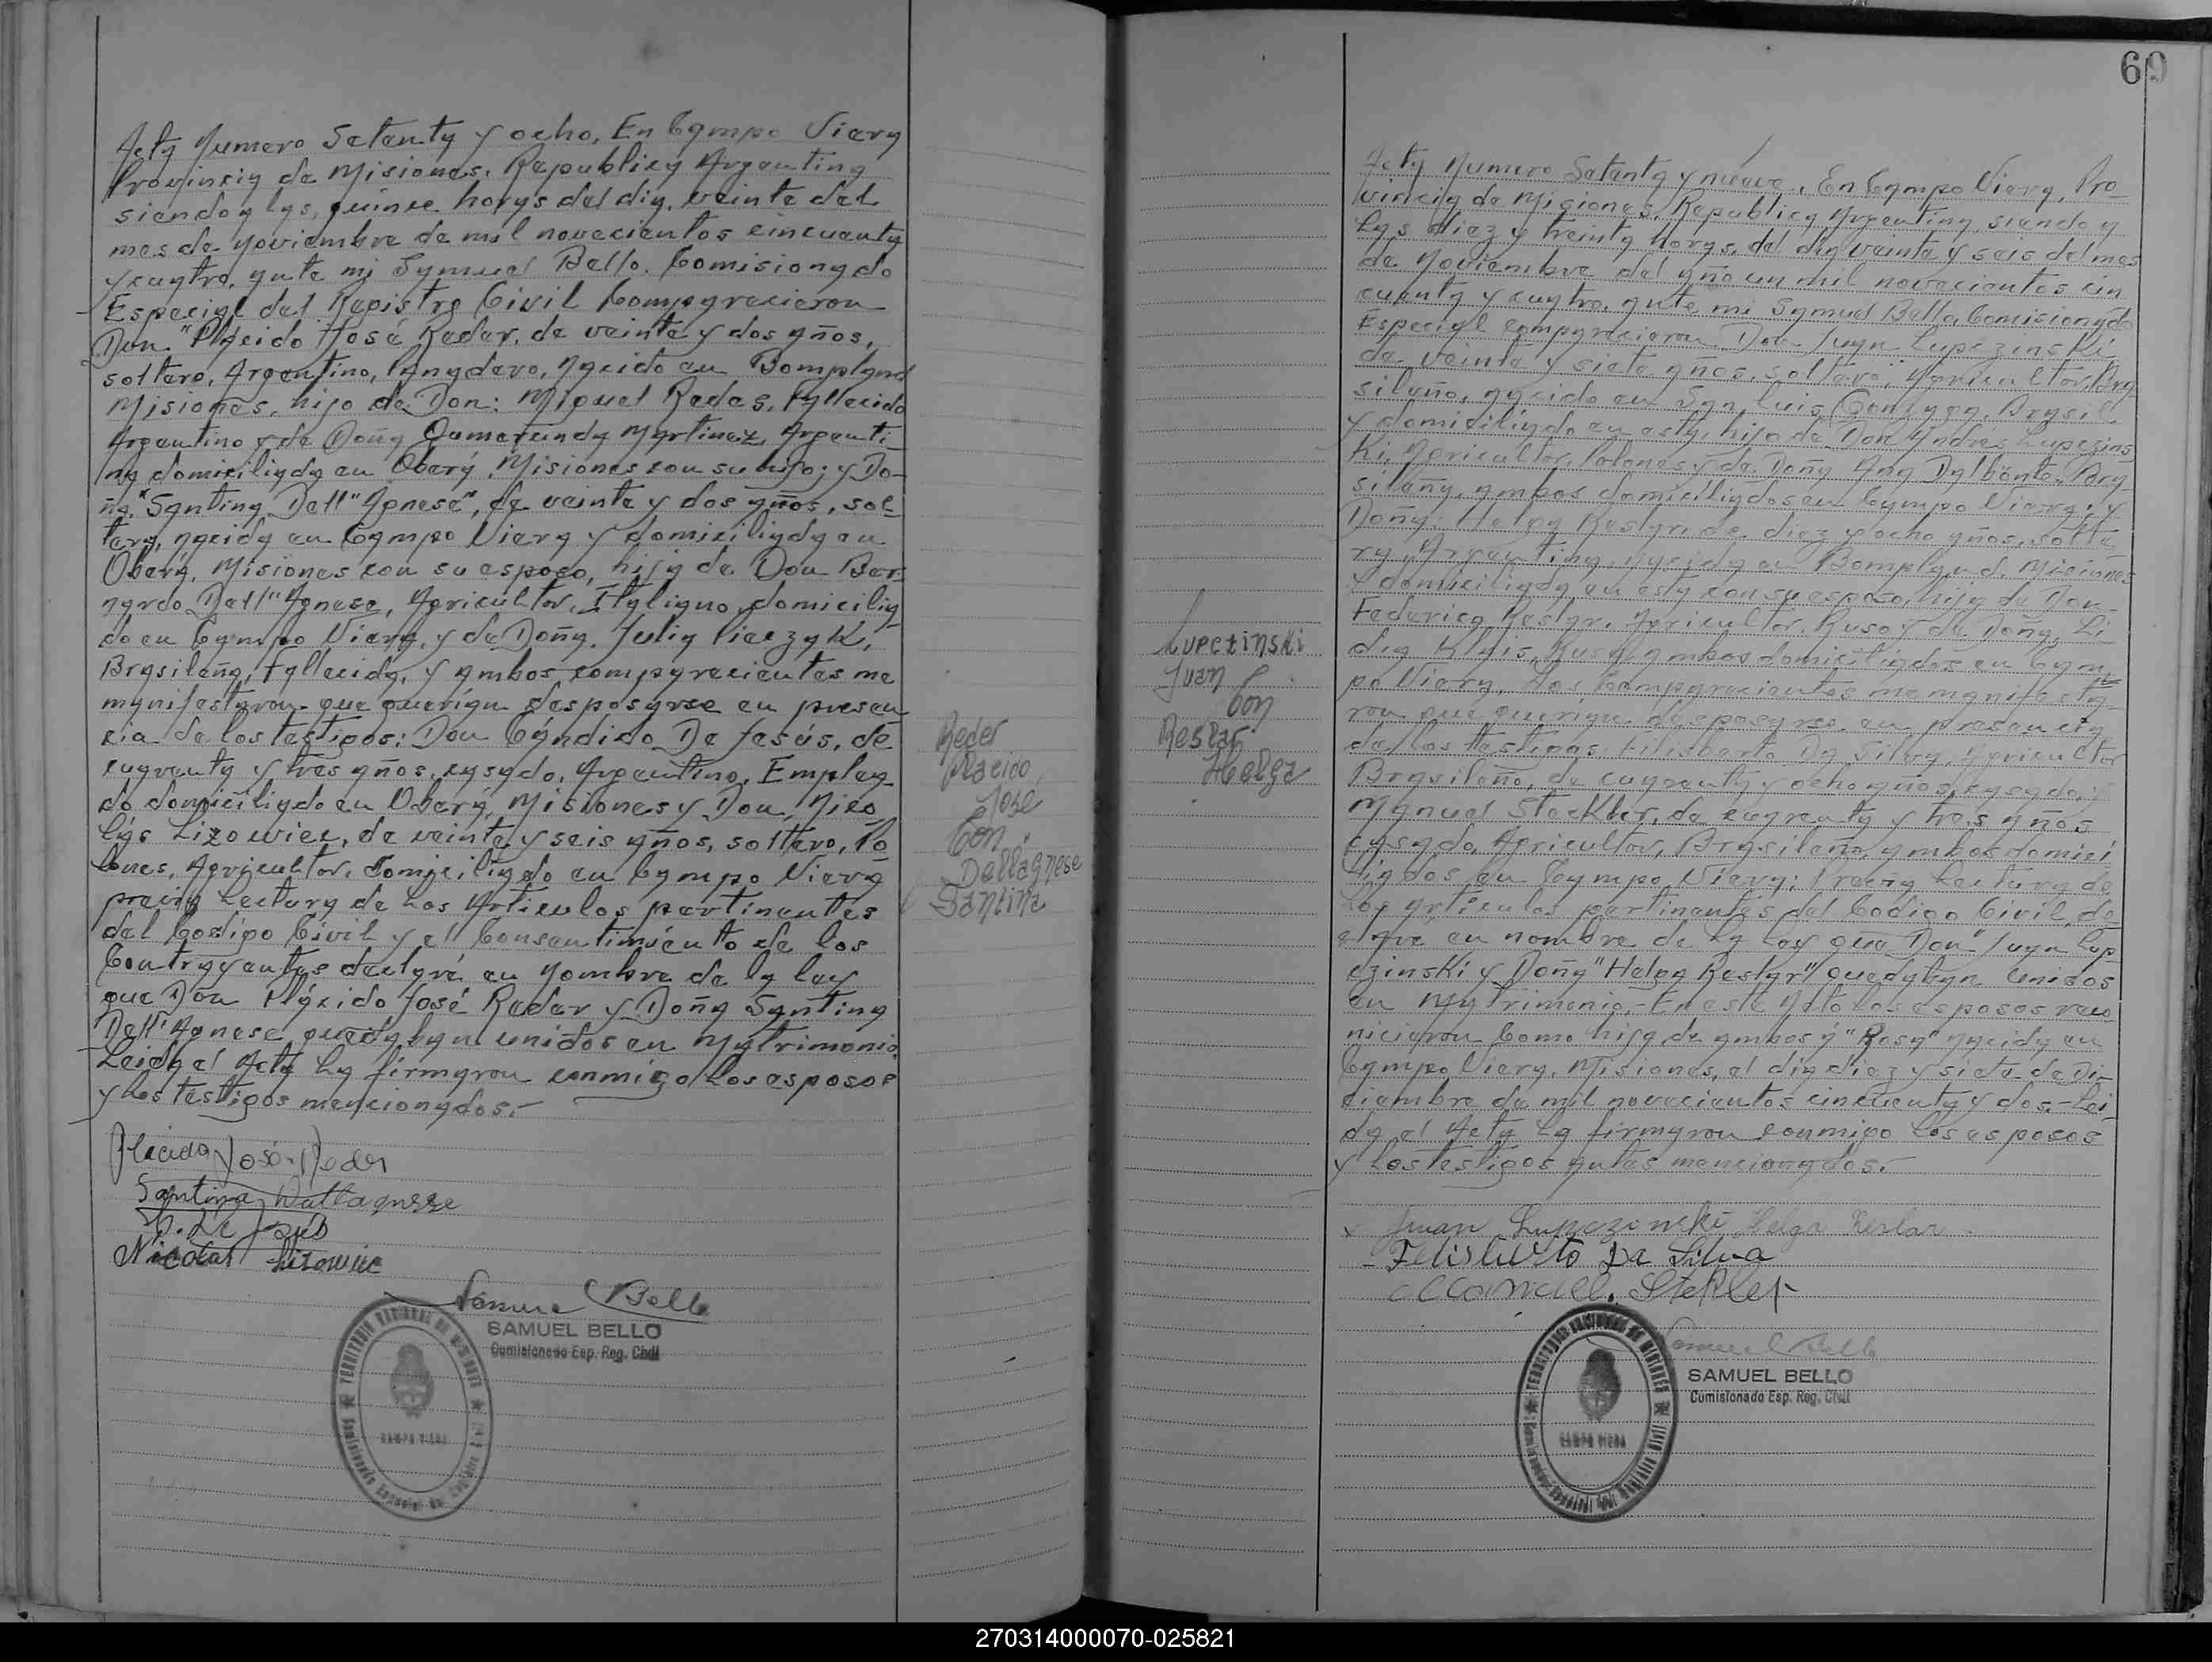 Acta Numero Setenta y ocho, En Campo Viera
Provincia de Misiones, Republica Argentina
siendo a las, quince horas del dia, veinte del
mes de noviembre de mil novecientos cincuenta
y cuatro, ante mi Samuel Bello. Comisionado
Especial del Registro Civil Comparecieron
Don "Placido José Reder, de veinte y dos años,
soltero, Argentino, Panadero, nacido en Bompland
Misiones, hijo de Don: Miguel Reder, Fallecido
Argentino y de Doña Martinez, Argenti
na domiciliada en Oberá, Misiones con su hijo; y Do-
ña "Santina Dall" Agnese", de veinte y dos años, sol-
tera, nacida en Campo Viera y domiciliada en
Oberá, Misiones con su esposo, hija de Don Ber-
nardo Dall" Agnese, Agricultor, Italiano, domicilia
do en Campo Viera, y de Doña. Julia Pieczyk,
Brasileña, Fallecida, y ambos comparecientes me
manifestaron que querian desposarse en presen
cia de los testigos: Don Cándido De Jesús, de
cuarenta y tres años, casado, Argentino, Emplea
do domiciliado en Oberá, Misiones y Don, Nico
lás Lizowiec, de veinte y seis años, soltero, Po
lones, Agricultor, domiciliado en Campo Viera
previa Lectura de Los Articulos pertinentes
del Codigo Civil y el Consentimiento de los
Contrayentes declaré en Nombre de la ley
que Don Plácido José Reder y Doña Santina
Dall' Agnese quedaban unidos en Matrimonio
Leida el Acta La firmaron conmigo Los esposos
y Los testigos mencionados.-
Placido José Reder
Santina Dallagnese
C. de Jesús
Nicolas Lizowiec
Samuel Bello
SAMUEL BELLO
Comisionado Esp. Reg. Civil
TERRITORIO NACIONAL DE MISIONES
CAMPO VIERA
Reder
Placido
José
Con
Dallagnese
Santina
69
Acta Numero Setenta y nueve, En Campo Viera, Pro-
vincia de Misiones, Republica Argentina, siendo a
Las diez y treinta horas, del dia veinte y seis del mes
de Noviembre del año un mil novecientos cin
cuenta y cuatro, ante mi Samuel Bello, Comisionado
Especial comparecieron Don Juan Lupczinski
de veinte y siete años, soltero, Agricultor, Bra
sileño, nacido en San Luis Gonzaga, Brasil
y domiciliado en esta, hijo de Don Andrés Lupczins
ki, Agricultor, Polones y de Doña Ana Dalbonte, Bra-
sileña, ambos domiciliados en Campo Viera; y
Doña: Helga Reslar, de diez y ocho años, solte
ra, Argentina, nacida en Bompland, Misiones
y domiciliada en esta con su esposo, hija de Don
Federico Reslar, Agricultor, Ruso y de Doña, Li
dia Klais, Rusa ambos domiciliados en Cam
po Viera, Los Comparecientes me manifesta-
ron que querian desposarse en presencia
de los testigos, Felisberto Da Silva, Agricultor
Brasileño, de cuarenta y ocho años, casado, y
Manuel Stockler, de cuarenta y tres años
casado, Agricultor, Brasileño, ambos domici
liados en Campo Viera; Previa Lectura de
Los articulos pertinentes del Codigo Civil, de
en nombre de La Ley que Don "Juan Lup
czinski y Doña "Helga Reslar" quedaban unidos
en Matrimonio.- En este Acto Los esposos reco
nocieron Como hija de ambos á "Rosa" nacida en
Campo Viera, Misiones, el dia diez y siete de Di-
ciembre de mil novecientos cincuenta y dos.- Lei-
da el Acta La firmaron conmigo Los esposos
y Los testigos antes mencionados.-
Lupczinski
Juan
Con
Reslar
Helga
Juan Lupczinski Helga Reslar
Felisberto Da Silva
Manuel. Stokler
Samuel Bello
SAMUEL BELLO
Comisionado Esp. Reg. Civil
TERRITORIO NACIONAL DE MISIONES
CAMPO VIERA
270314000070-025821